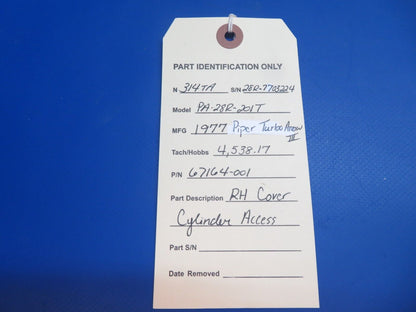 PART IDENTIFICATION ONLY
N 314TA S/N 28R-7703224
Model PA-28R-201T
MFG 1977 Piper Turbo Arrow III
Tach/Hobbs 4,538.17
P/N 67164-001
Part Description RH Cover
Cylinder Access
Part S/N
Date Removed